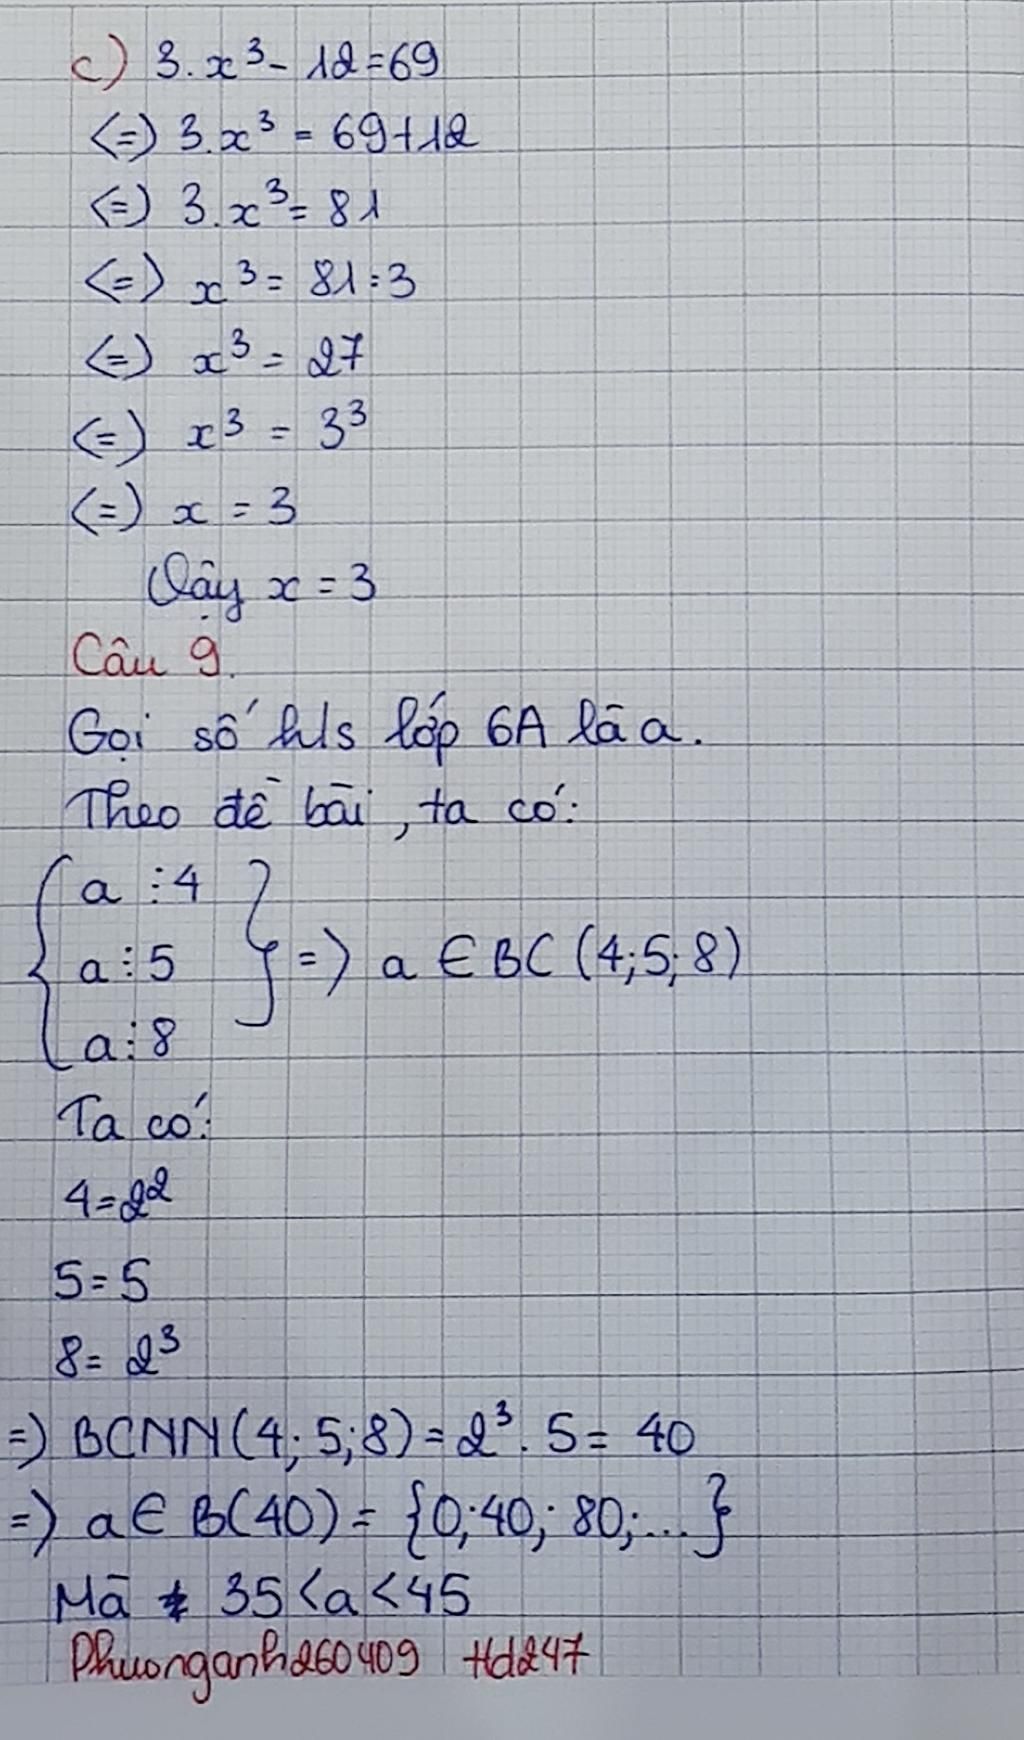 c) 3.x³ - 12 = 69
<=> 3.x³ = 69+12
<=> 3.x³ = 81
<=> x³ = 81:3
<=> x³ = 27
<=> x³ = 3³
<=> x = 3
Vậy x = 3
Câu 9.
Gọi số h/s lớp 6A là a.
Theo đề bài, ta có:
{ a ⋮ 4
a ⋮ 5 } => a ∈ BC (4;5;8)
a ⋮ 8
Ta có:
4 = 2²
5 = 5
8 = 2³
=> BCNN(4;5;8) = 2³.5 = 40
=> a ∈ B(40) = {0;40;80;...}
Mà 35 < a < 45
Phuonganh260409 Hd247